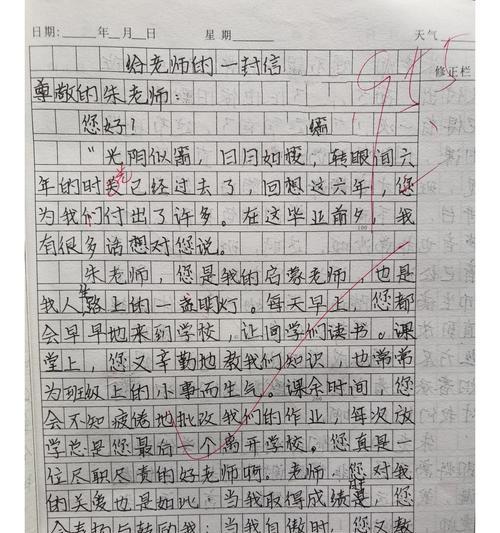 日期：　年　月　日　星期　天气
95
修正栏
给老师的一封信
尊敬的朱老师：
您好！
箭
"光阴似箭，日月如梭"，转眼间六
年的时光已经过去了，回想这六年，您
为我们付出了许多。在这毕业前夕，我
有很多话想对您说。
朱老师，您是我的启蒙老师，也是
我人生路上的一盏明灯。每天早上，您都
会早早地来到学校，让同学们读书。课
堂上，您又辛勤地教我们知识，也常常
为班级上的小事而生气。课余时间，您
会不知疲倦地批改我们的作业，每次放
学总是您最后一个离开学校。您真是一
位尽职尽责的好老师啊。老师，您对我
的关爱也是如此，当我取得成绩时，您
会表扬与鼓励我；当我自傲时，您又教